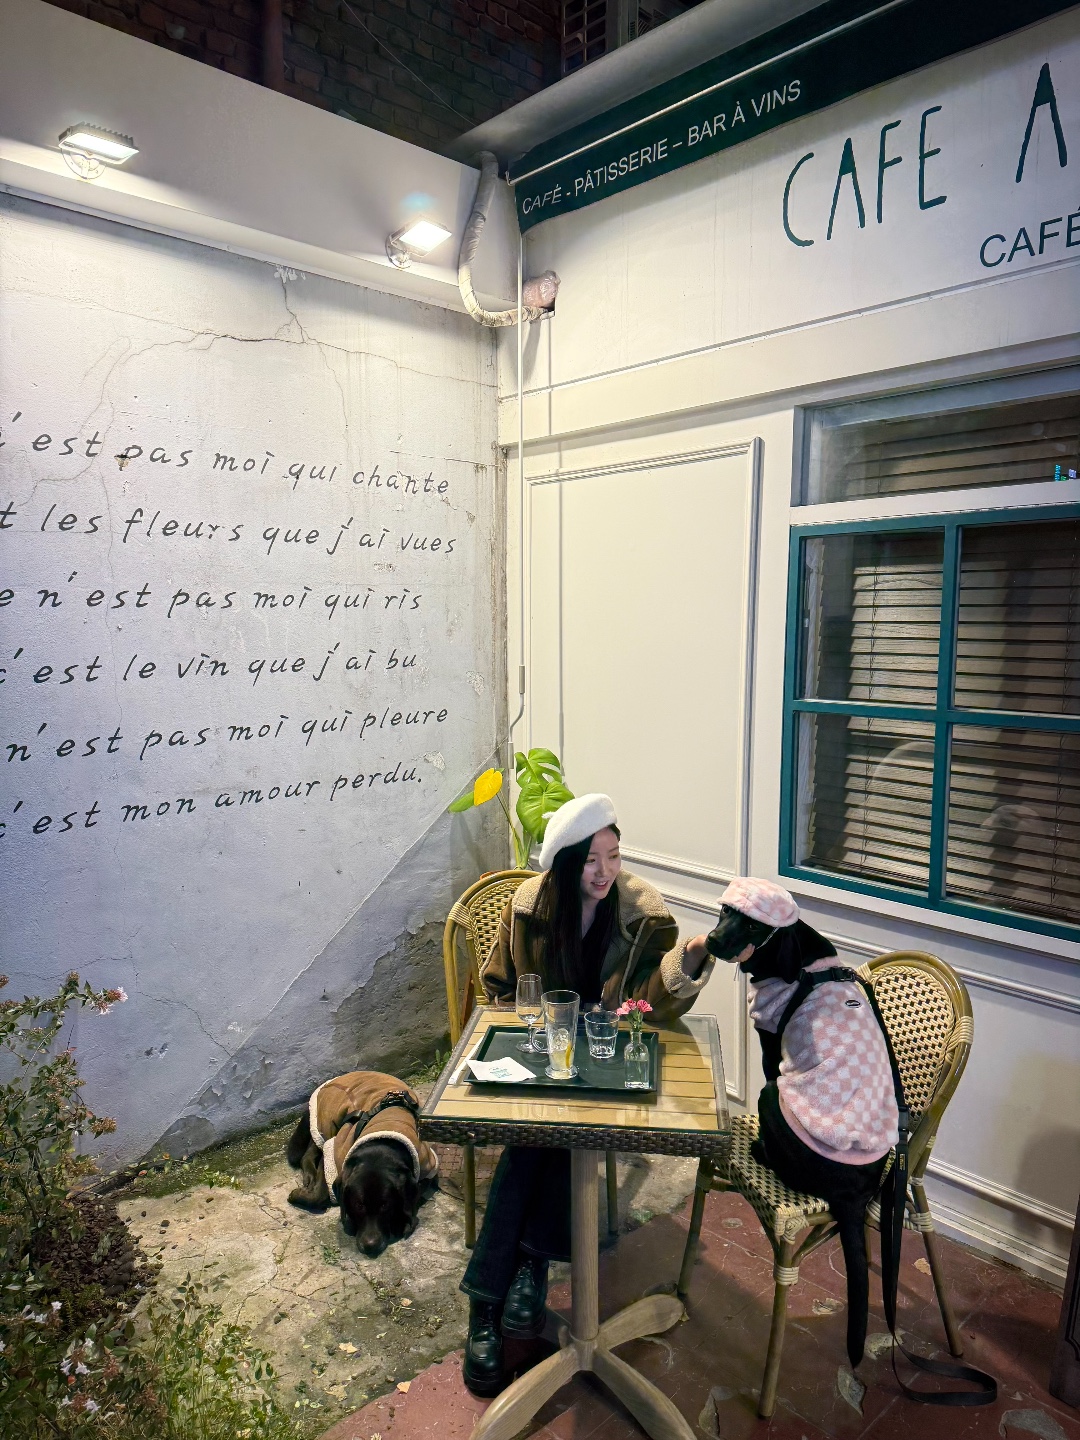 CAFÉ - PÂTISSERIE – BAR À VINS
CAFE A
CAFÉ
'est pas moi qui chante
t les fleurs que j'ai vues
e n'est pas moi qui ris
c'est le vin que j'ai bu
n'est pas moi qui pleure
c'est mon amour perdu.